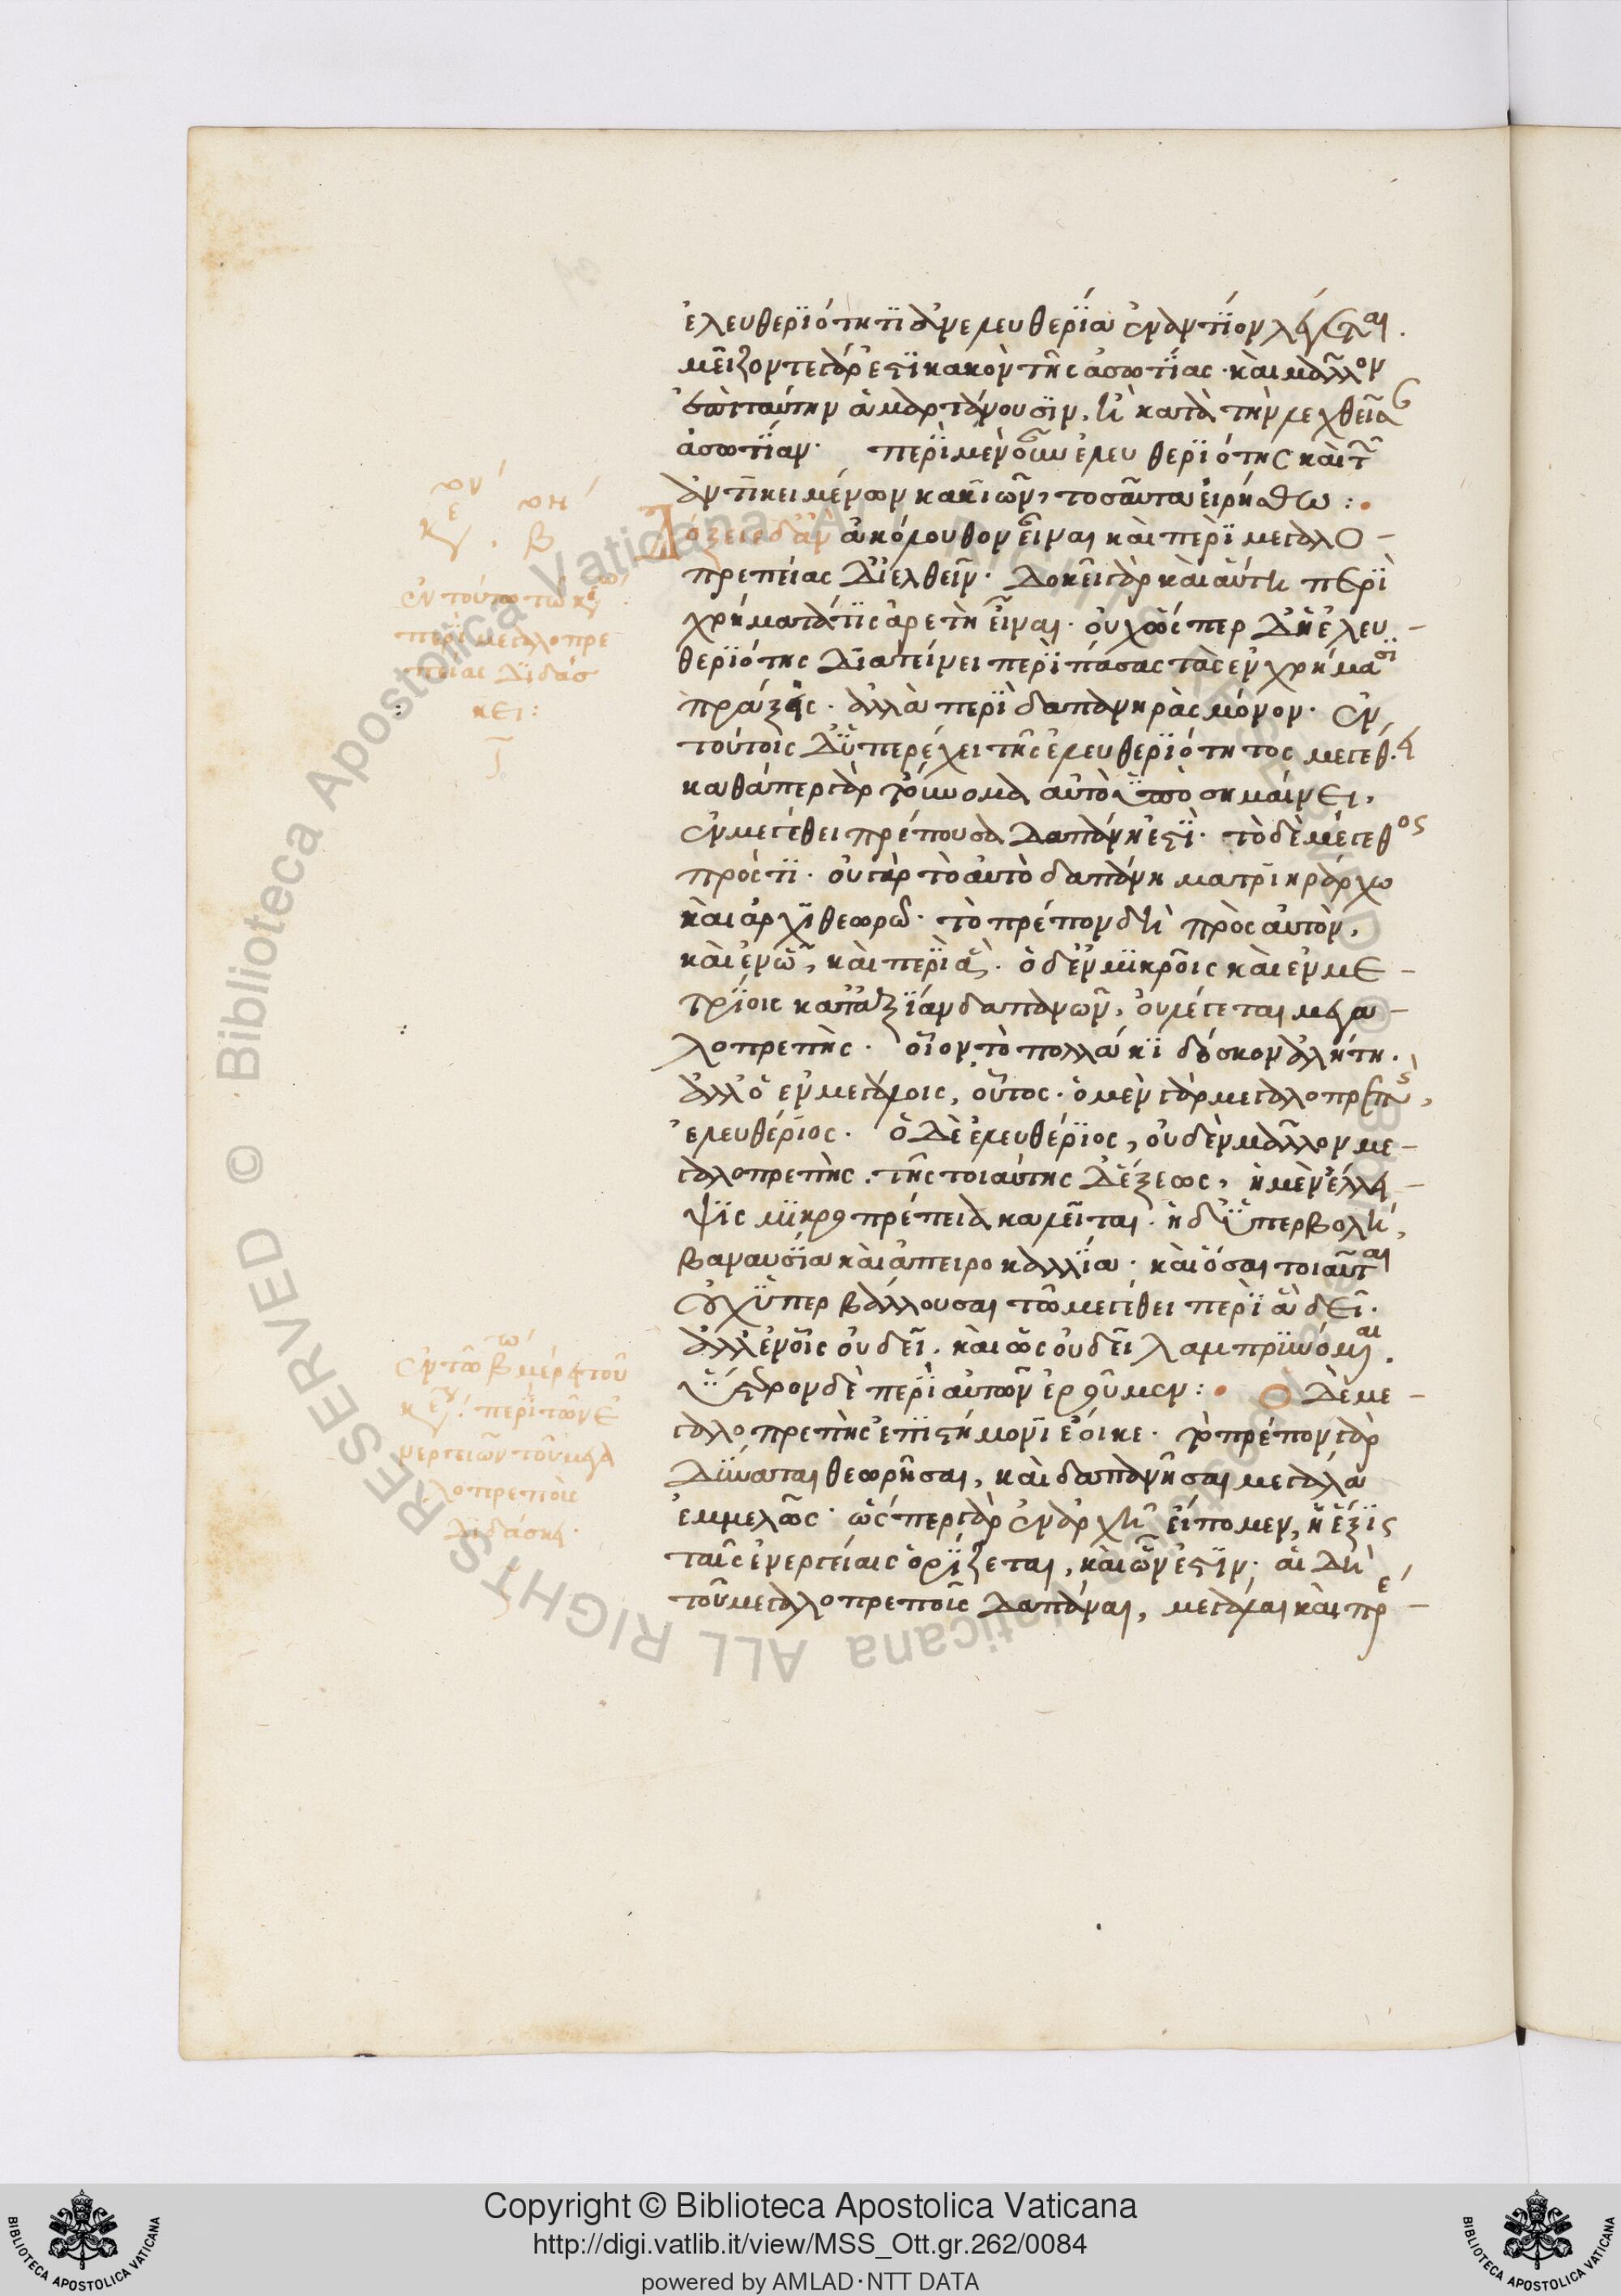 ἐλευθεριότητι ἀνελευθερία ἐναντίον λέγεται.
μεῖζόν τε γάρ ἐστι κακὸν τῆς ἀσωτίας· καὶ μᾶλλον
ἐπὶ ταύτην ἁμαρτάνουσιν, ἢ κατὰ τὴν λεχθεῖσαν
ἀσωτίαν· περὶ μὲν οὖν ἐλευθεριότης καὶ τῶν
ἀντικειμένων κακιῶν, τοσαῦτα εἰρήσθω:
Δόξειε δ' ἂν ἀκόλουθον εἶναι καὶ περὶ μεγαλο-
πρεπείας διελθεῖν· δοκεῖ γὰρ καὶ αὕτη περὶ
χρήματά τις ἀρετὴ εἶναι· οὐχ ὥσπερ δ' ἡ ἐλευ-
θεριότης διατείνει περὶ πάσας τὰς ἐν χρήμασι
πράξεις· ἀλλὰ περὶ δαπανηρὰς μόνον· ἐν
τούτοις δ' ὑπερέχει τῆς ἐλευθεριότητος μεγέθει.
καθάπερ γὰρ τοὔνομα αὐτὸ ὑποσημαίνει,
ἐν μεγέθει πρέπουσα δαπάνη ἐστί· τὸ δὲ μέγεθος
πρός τι· οὐ γὰρ τὸ αὐτὸ δαπάνημα τριηράρχω
καὶ ἀρχιθεωρῶ· τὸ πρέπον δὴ πρὸς αὐτόν,
καὶ ἐν ᾧ, καὶ περὶ ἅ· ὁ δ' ἐν μικροῖς καὶ ἐν με-
τρίοις κατ' ἀξίαν δαπανῶν, οὐ λέγεται μεγα-
λοπρεπής· οἷον τὸ πολλάκι δόσκον ἀλήτη.
ἀλλ' ὁ ἐν μεγάλοις, οὕτος· ὁ μὲν γὰρ μεγαλοπρεπὴς,
ἐλευθέριος· ὁ δὲ ἐλευθέριος, οὐδὲν μᾶλλον με-
γαλοπρεπής. τῆς τοιαύτης δ' ἕξεως, ἡ μὲν ἔλλει-
ψις μικροπρέπεια καλεῖται· ἡ δ' ὑπερβολή,
βαναυσία καὶ ἀπειροκαλλία· καὶ ὅσαι τοιαῦται
οὐχ ὑπερβάλλουσαι τῷ μεγέθει περὶ ἃ δεῖ.
ἀλλ' ἐν οἷς οὐ δεῖ. καὶ ὡς οὐ δεῖ λαμπρυνόμεναι.
ὕστερον δὲ περὶ αὐτῶν ἐροῦμεν: Ὁ δὲ με-
γαλοπρεπὴς ἐπιστήμονι ἔοικε· τὸ πρέπον γὰρ
δύναται θεωρῆσαι, καὶ δαπανῆσαι μεγάλα
ἐμμελῶς· ὥσπερ γὰρ ἐν ἀρχῇ εἴπομεν, ἡ ἕξις
ταῖς ἐνεργείαις ὁρίζεται, καὶ ὧν ἐστίν· αἱ δὴ
τοῦ μεγαλοπρεποῦς δαπάναι, μεγάλαι καὶ πρέ-
ἐν τούτω τῷ κεφαλαίῳ
περὶ μεγαλοπρε
πείας διδάσ
κει:
ἐν τῷ βω μέρει τοῦ
περὶ τῶν ἐ
νεργειῶν τοῦ μεγα
λοπρεποῦς
διδάσκει·
Copyright © Biblioteca Apostolica Vaticana
http://digi.vatlib.it/view/MSS_Ott.gr.262/0084
powered by AMLAD·NTT DATA
BIBLIOTECA APOSTOLICA VATICANA
BIBLIOTECA APOSTOLICA VATICANA
© Biblioteca Apostolica Vaticana ALL RIGHTS RESERVED